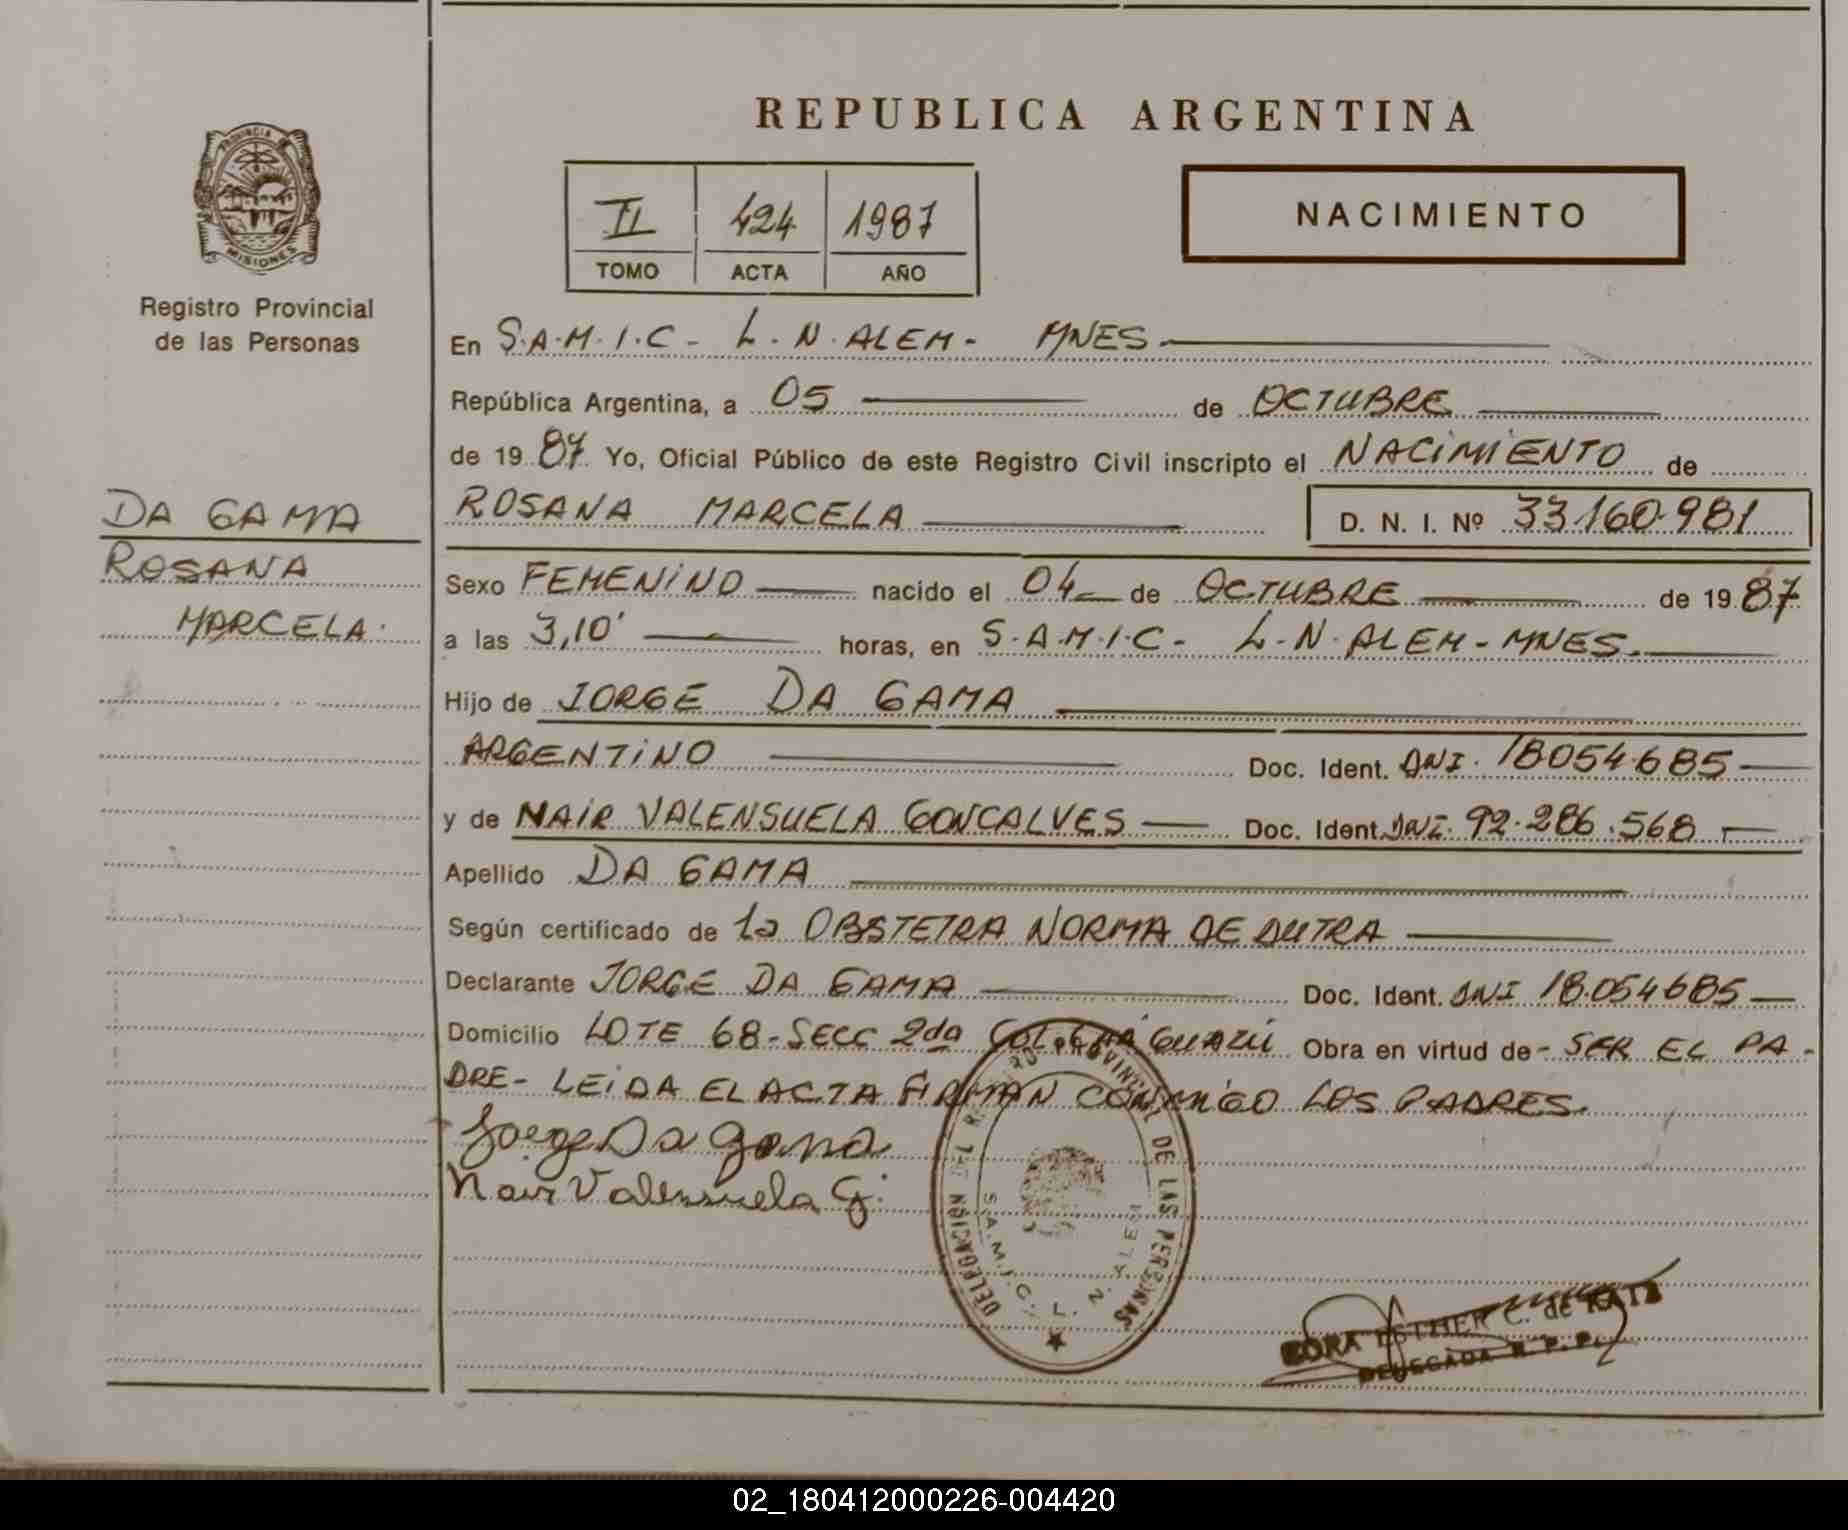 REPUBLICA ARGENTINA
PROVINCIA
MISIONES
Registro Provincial
de las Personas
II 424 1987
TOMO ACTA AÑO
NACIMIENTO
En S.A.M.I.C - L.N. ALEM - MNES
República Argentina, a 05 de OCTUBRE
de 19 87 Yo, Oficial Público de este Registro Civil inscripto el NACIMIENTO de
ROSANA MARCELA D. N. I. Nº 33.160.981
DA GAMA
ROSANA
MARCELA
Sexo FEMENINO nacido el 04 de OCTUBRE de 19 87
a las 3,10' horas, en S.A.M.I.C - L.N. ALEM - MNES.
Hijo de JORGE DA GAMA
ARGENTINO Doc. Ident. DNI. 18054.685
y de NAIR VALENSUELA GONCALVES Doc. Ident. DNI. 92.286.568
Apellido DA GAMA
Según certificado de la OBSTETRA NORMA DE DUTRA
Declarante JORGE DA GAMA Doc. Ident. DNI 18.054685
Domicilio LOTE 68 - SECC 2da COL. GUAZÚ Obra en virtud de - SER EL PA-
DRE - LEIDA EL ACTA FIRMAN CONMIGO LOS PADRES.
Jorge Da Gama
Nair Valensuela G.
REGISTRO PROVINCIAL DE LAS PERSONAS
DELEGACION
S.A.M.I.C. L. N. ALEM
ESTHER C. de KATZ
DELEGADA R. P. P.
02_180412000226-004420